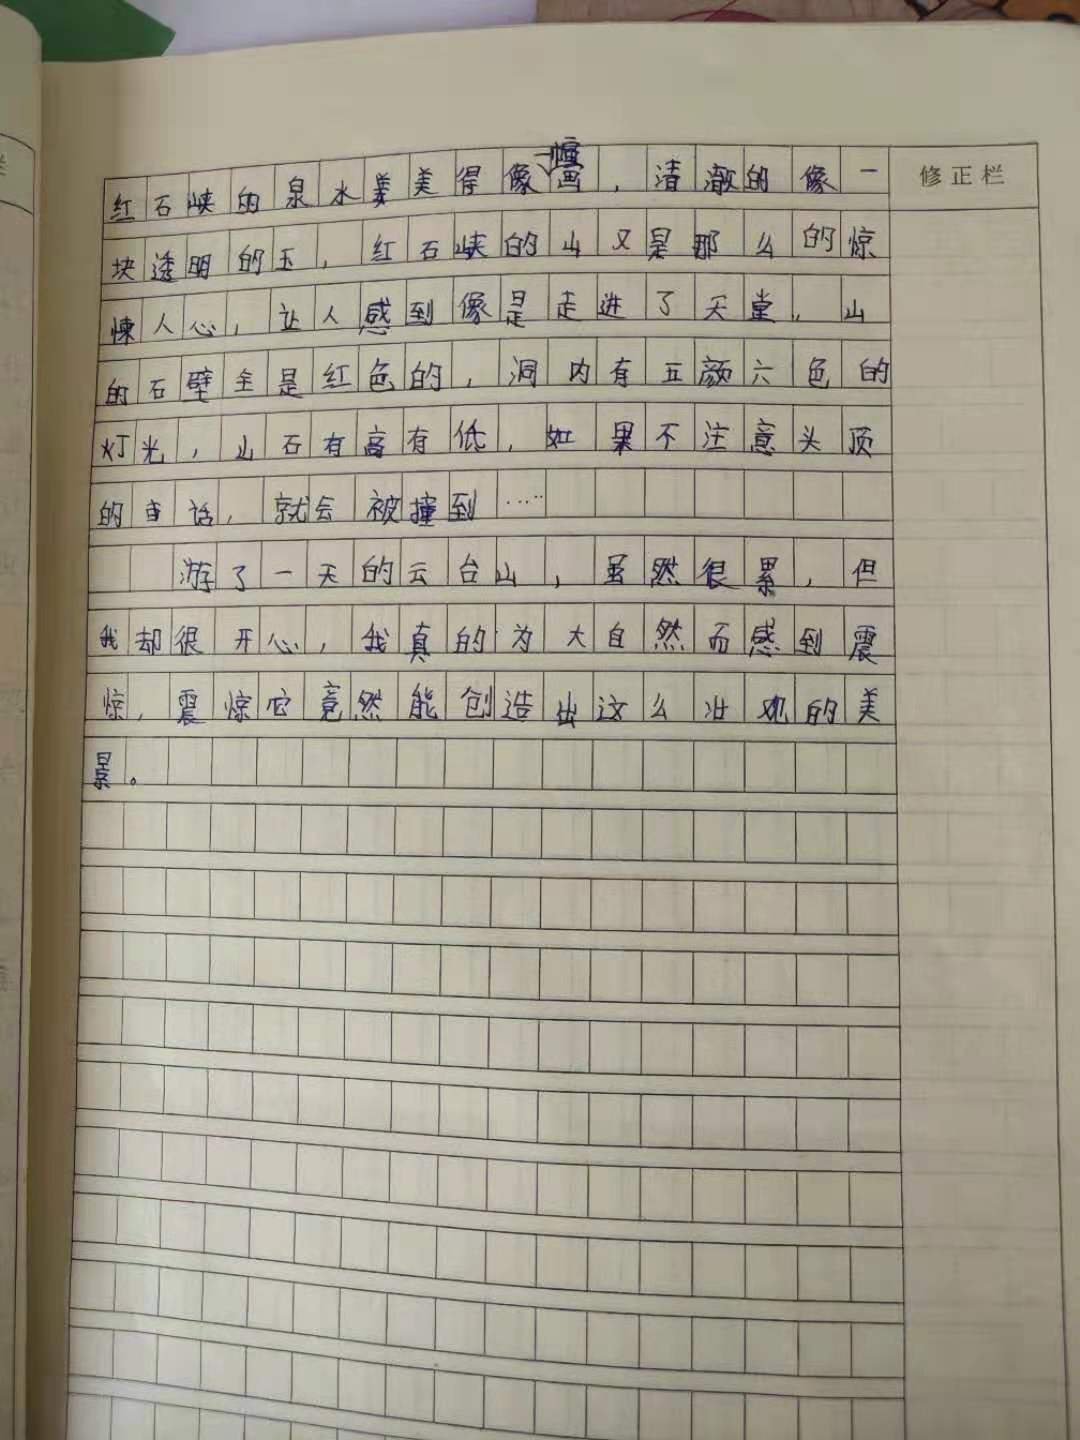 红石峡的泉水美得像一幢画，清澈的像一
修正栏
块透明的玉，红石峡的山又是那么的惊
悚人心，让人感到像是走进了天堂，山
的石壁全是红色的，洞内有五颜六色的
灯光，山石有高有低，如果不注意头顶
的话，就会被撞到……
游了一天的云台山，虽然很累，但
我却很开心，我真的为大自然而感到震
惊，震惊它竟然能创造出这么壮观的美
景。